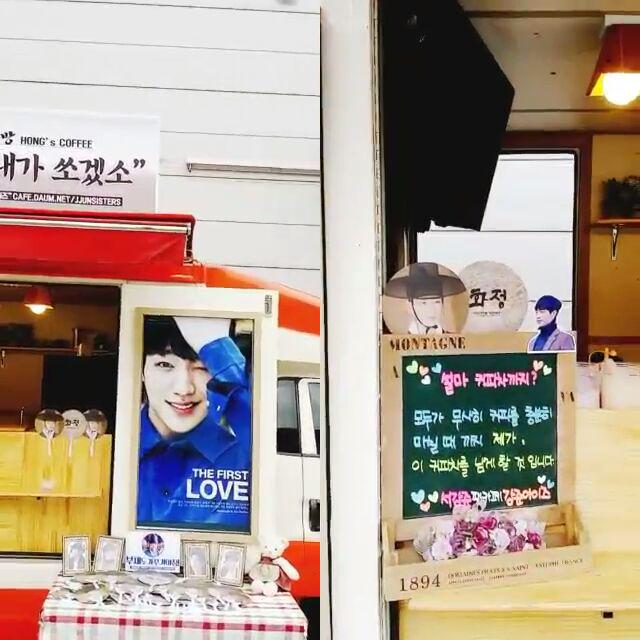 방 HONG's COFFEE
내가 쏘겠소"
CAFE.DAUM.NET/JJUNSISTERS
화정
THE FIRST
LOVE
화정
MONTAGNE
설마 커피차까지?
모두가 무사히 커피를 충분히
마실 때 까지 제가
이 커피차를 넘게 할 것 입니다
서강준팬카페[강준아이즈
1894